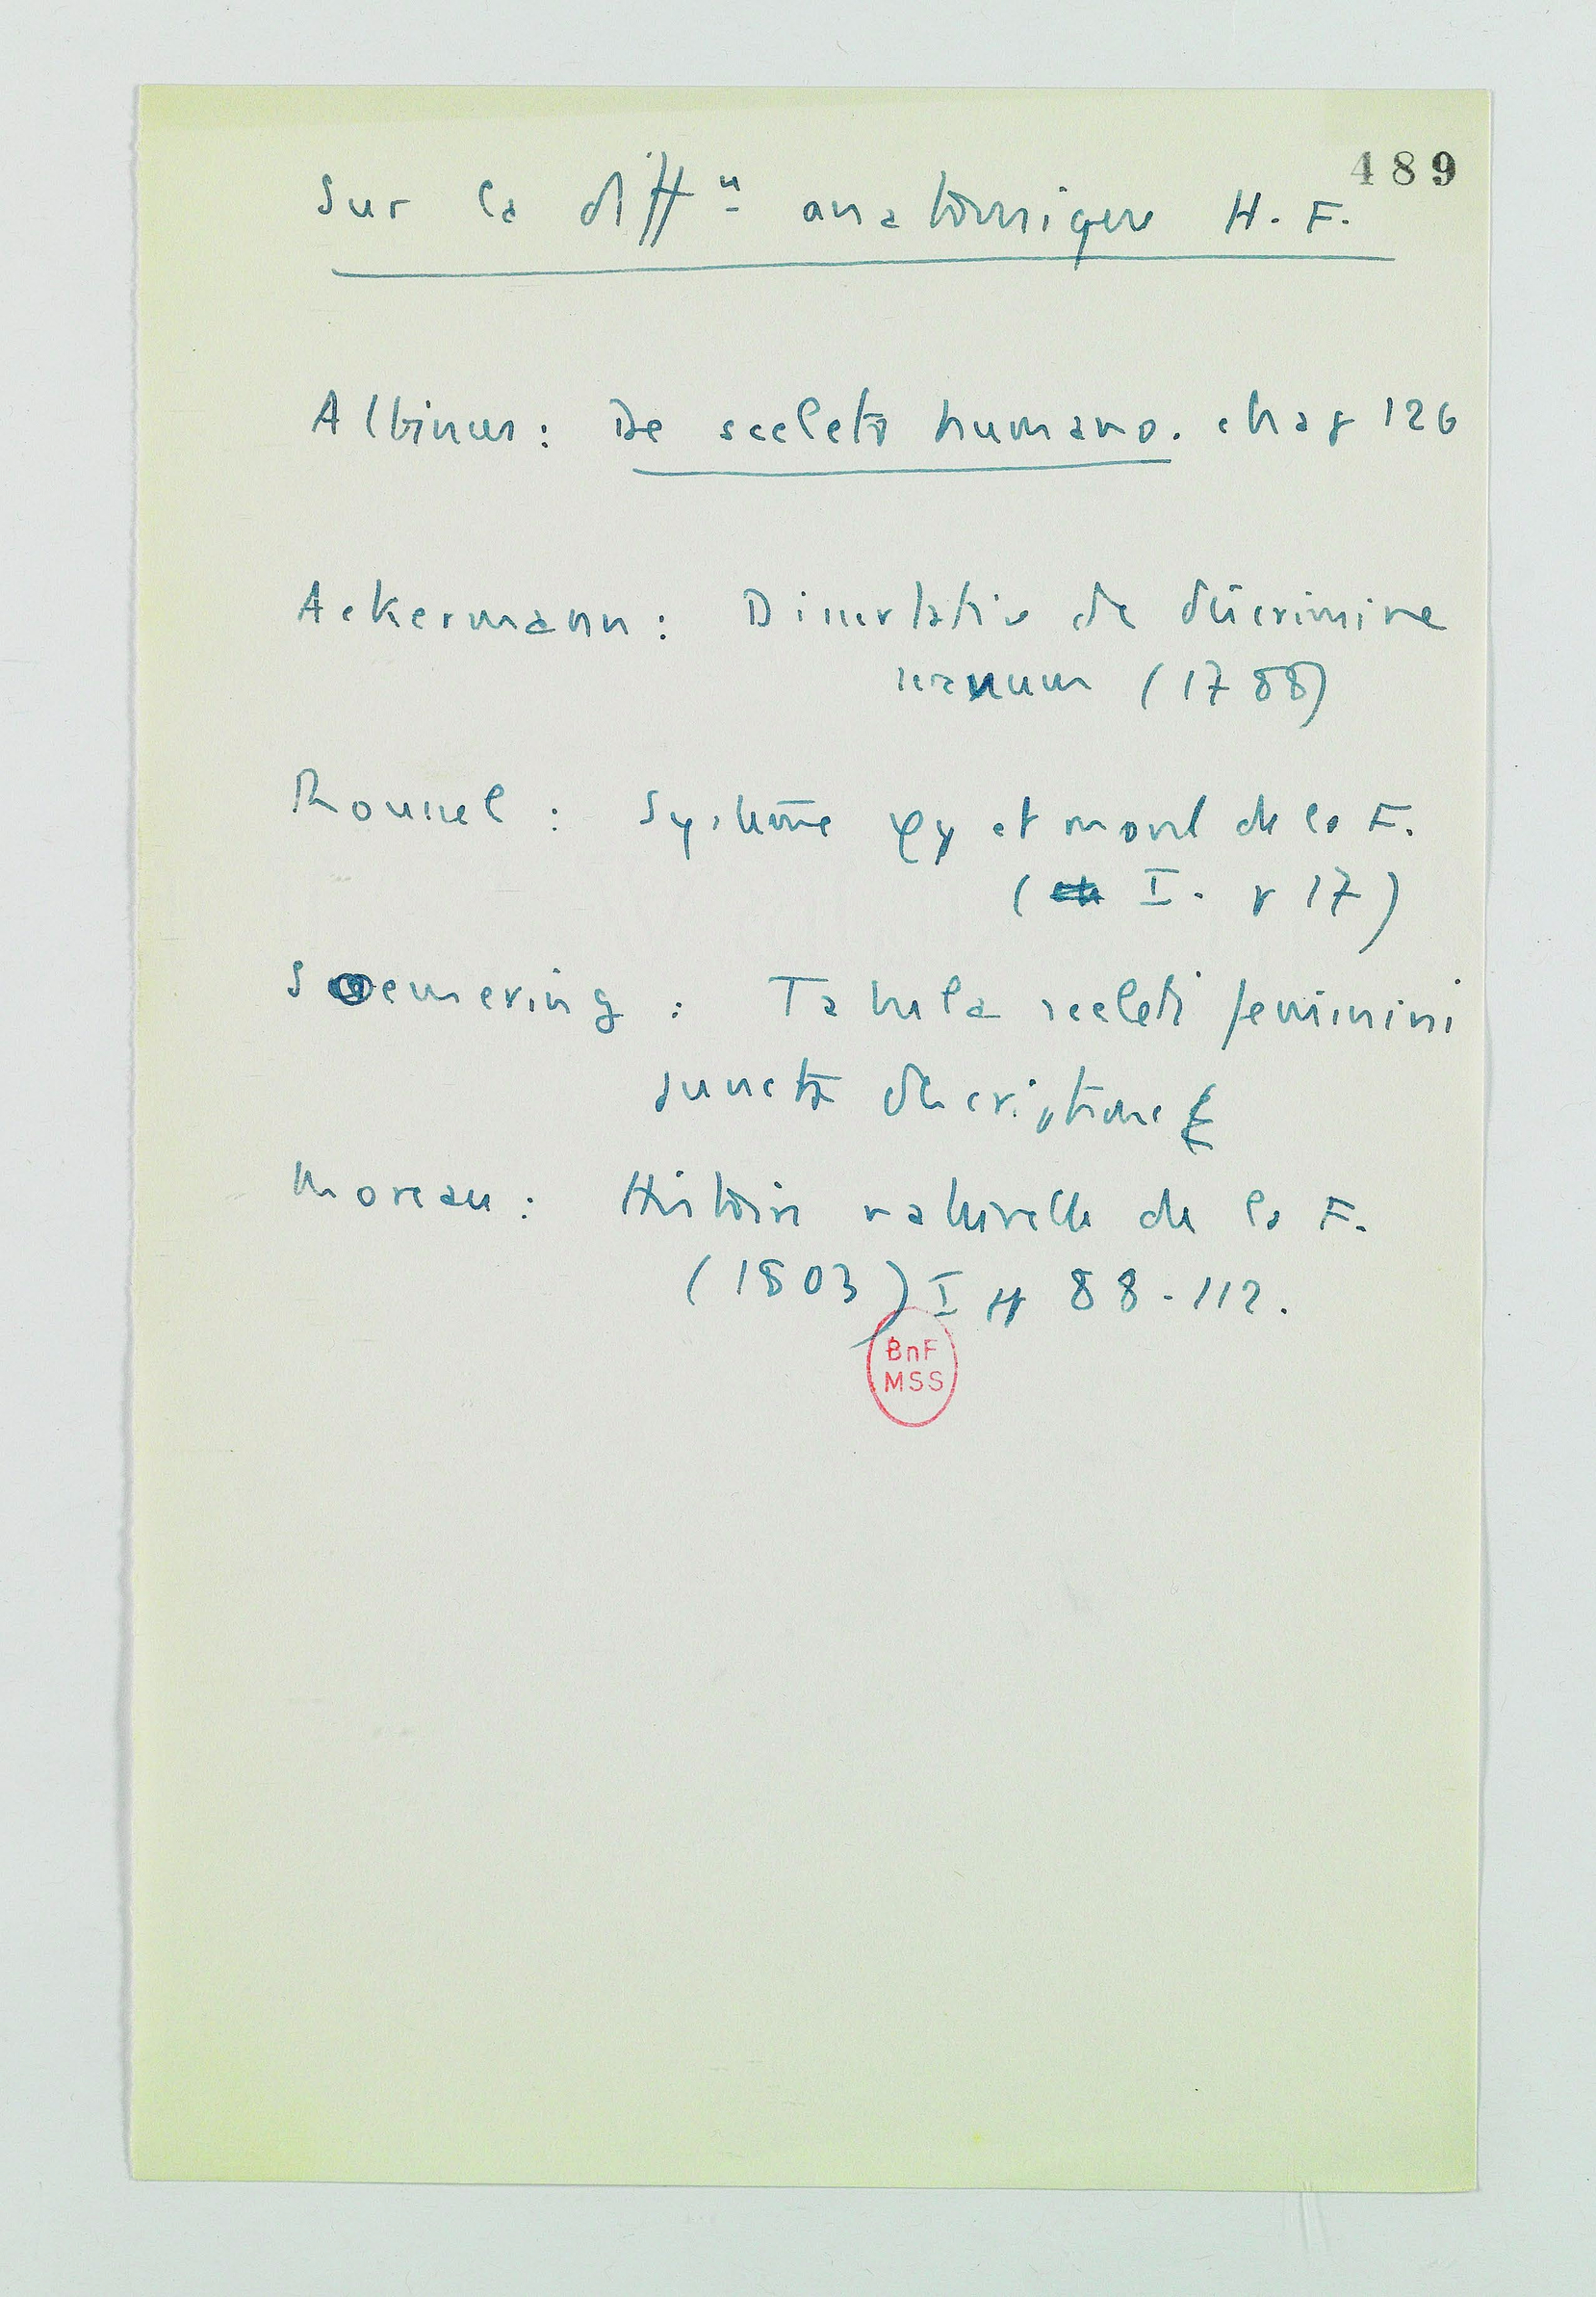 489
Sur la diff^n anatomique H. F.
Albinus : De sceleto humano. chap 126
Ackermann : Dissertatio de discrimine
sexuum (1788)
Roussel : Système φy et moral de la F.
(I. p 17)
Soemering : Tabula sceleti feminini
juncta descriptione
Moreau : Histoire naturelle de la F.
(1803) I pp 88-112.
BnF
MSS